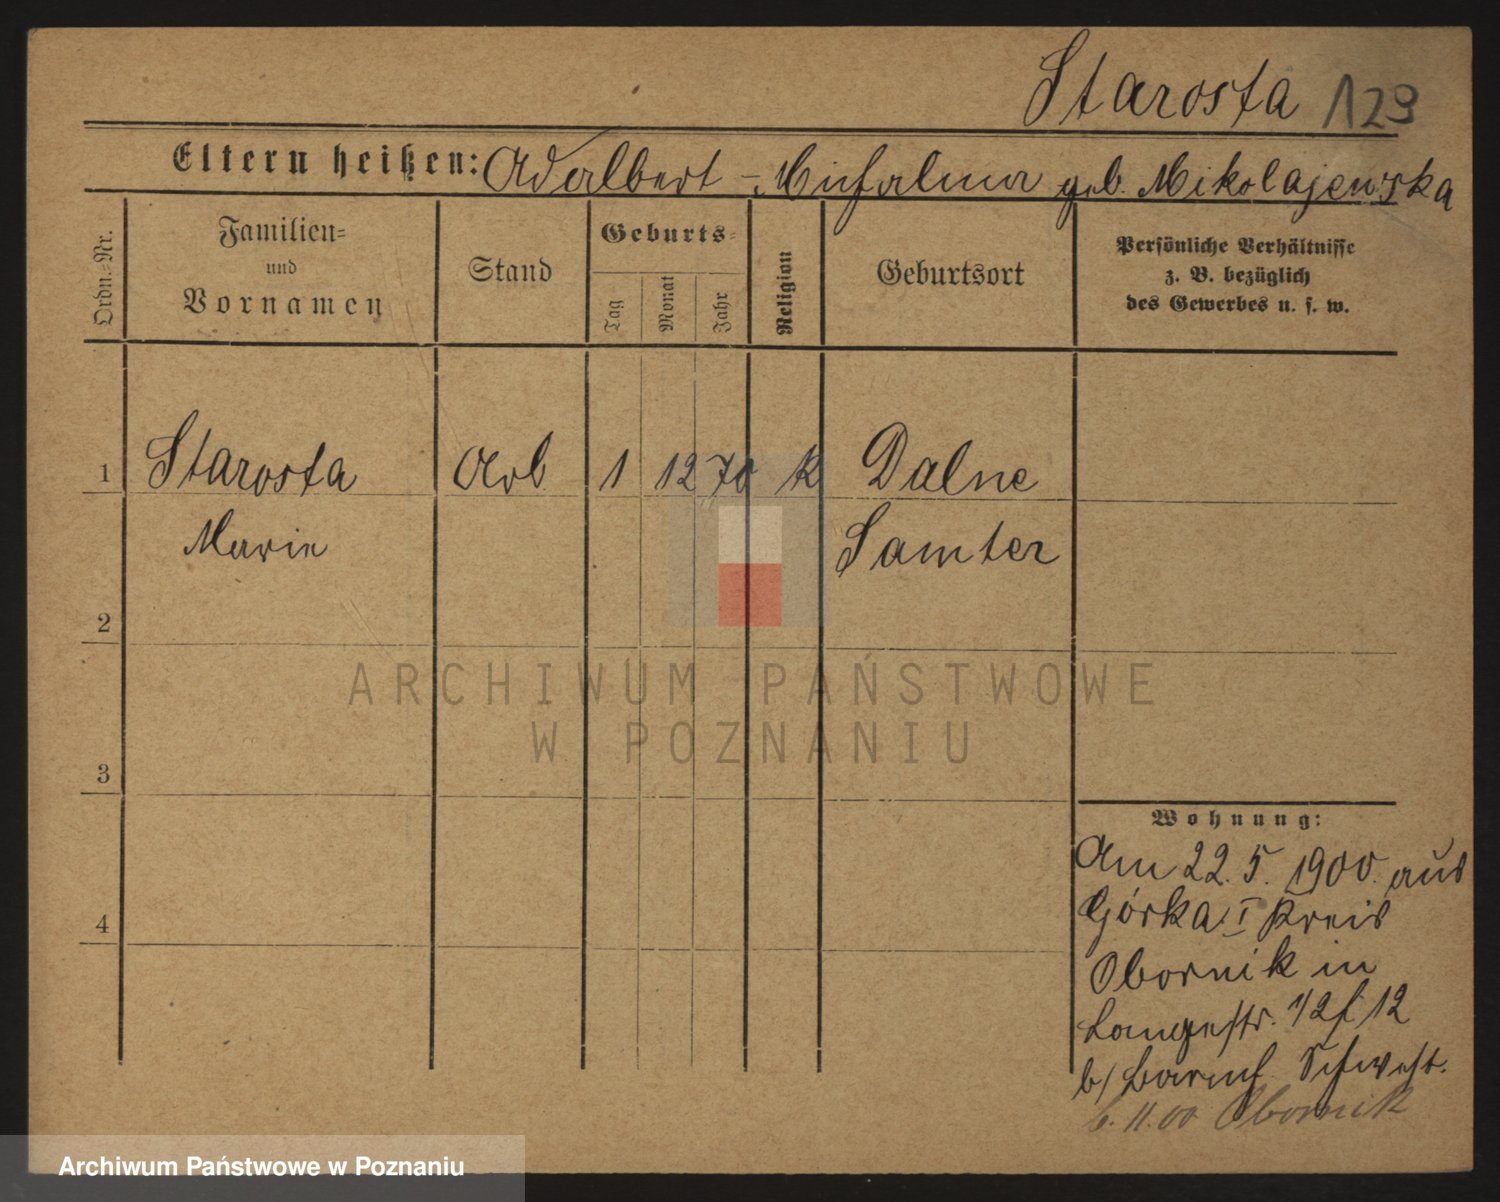 Starosta 129
Eltern heißen: Adalbert - Michalina geb. Mikolajewska
Ordn.=Nr.
Familien=
und
Vornamen
Stand
Geburts=
Tag
Monat
Jahr
Religion
Geburtsort
Persönliche Verhältnisse
z. B. bezüglich
des Gewerbes u. s. w.
1 Starosta Arb 1 12 70 k Dalne
Marie Samter
2
ARCHIWUM PAŃSTWOWE
W POZNANIU
3
4
Wohnung:
Am 22. 5. 1900. aus
Górka I Kreis
Obornik in
Langestr. 12
b/ Baruch Schwest.
6. 11. 00 Obornik
Archiwum Państwowe w Poznaniu